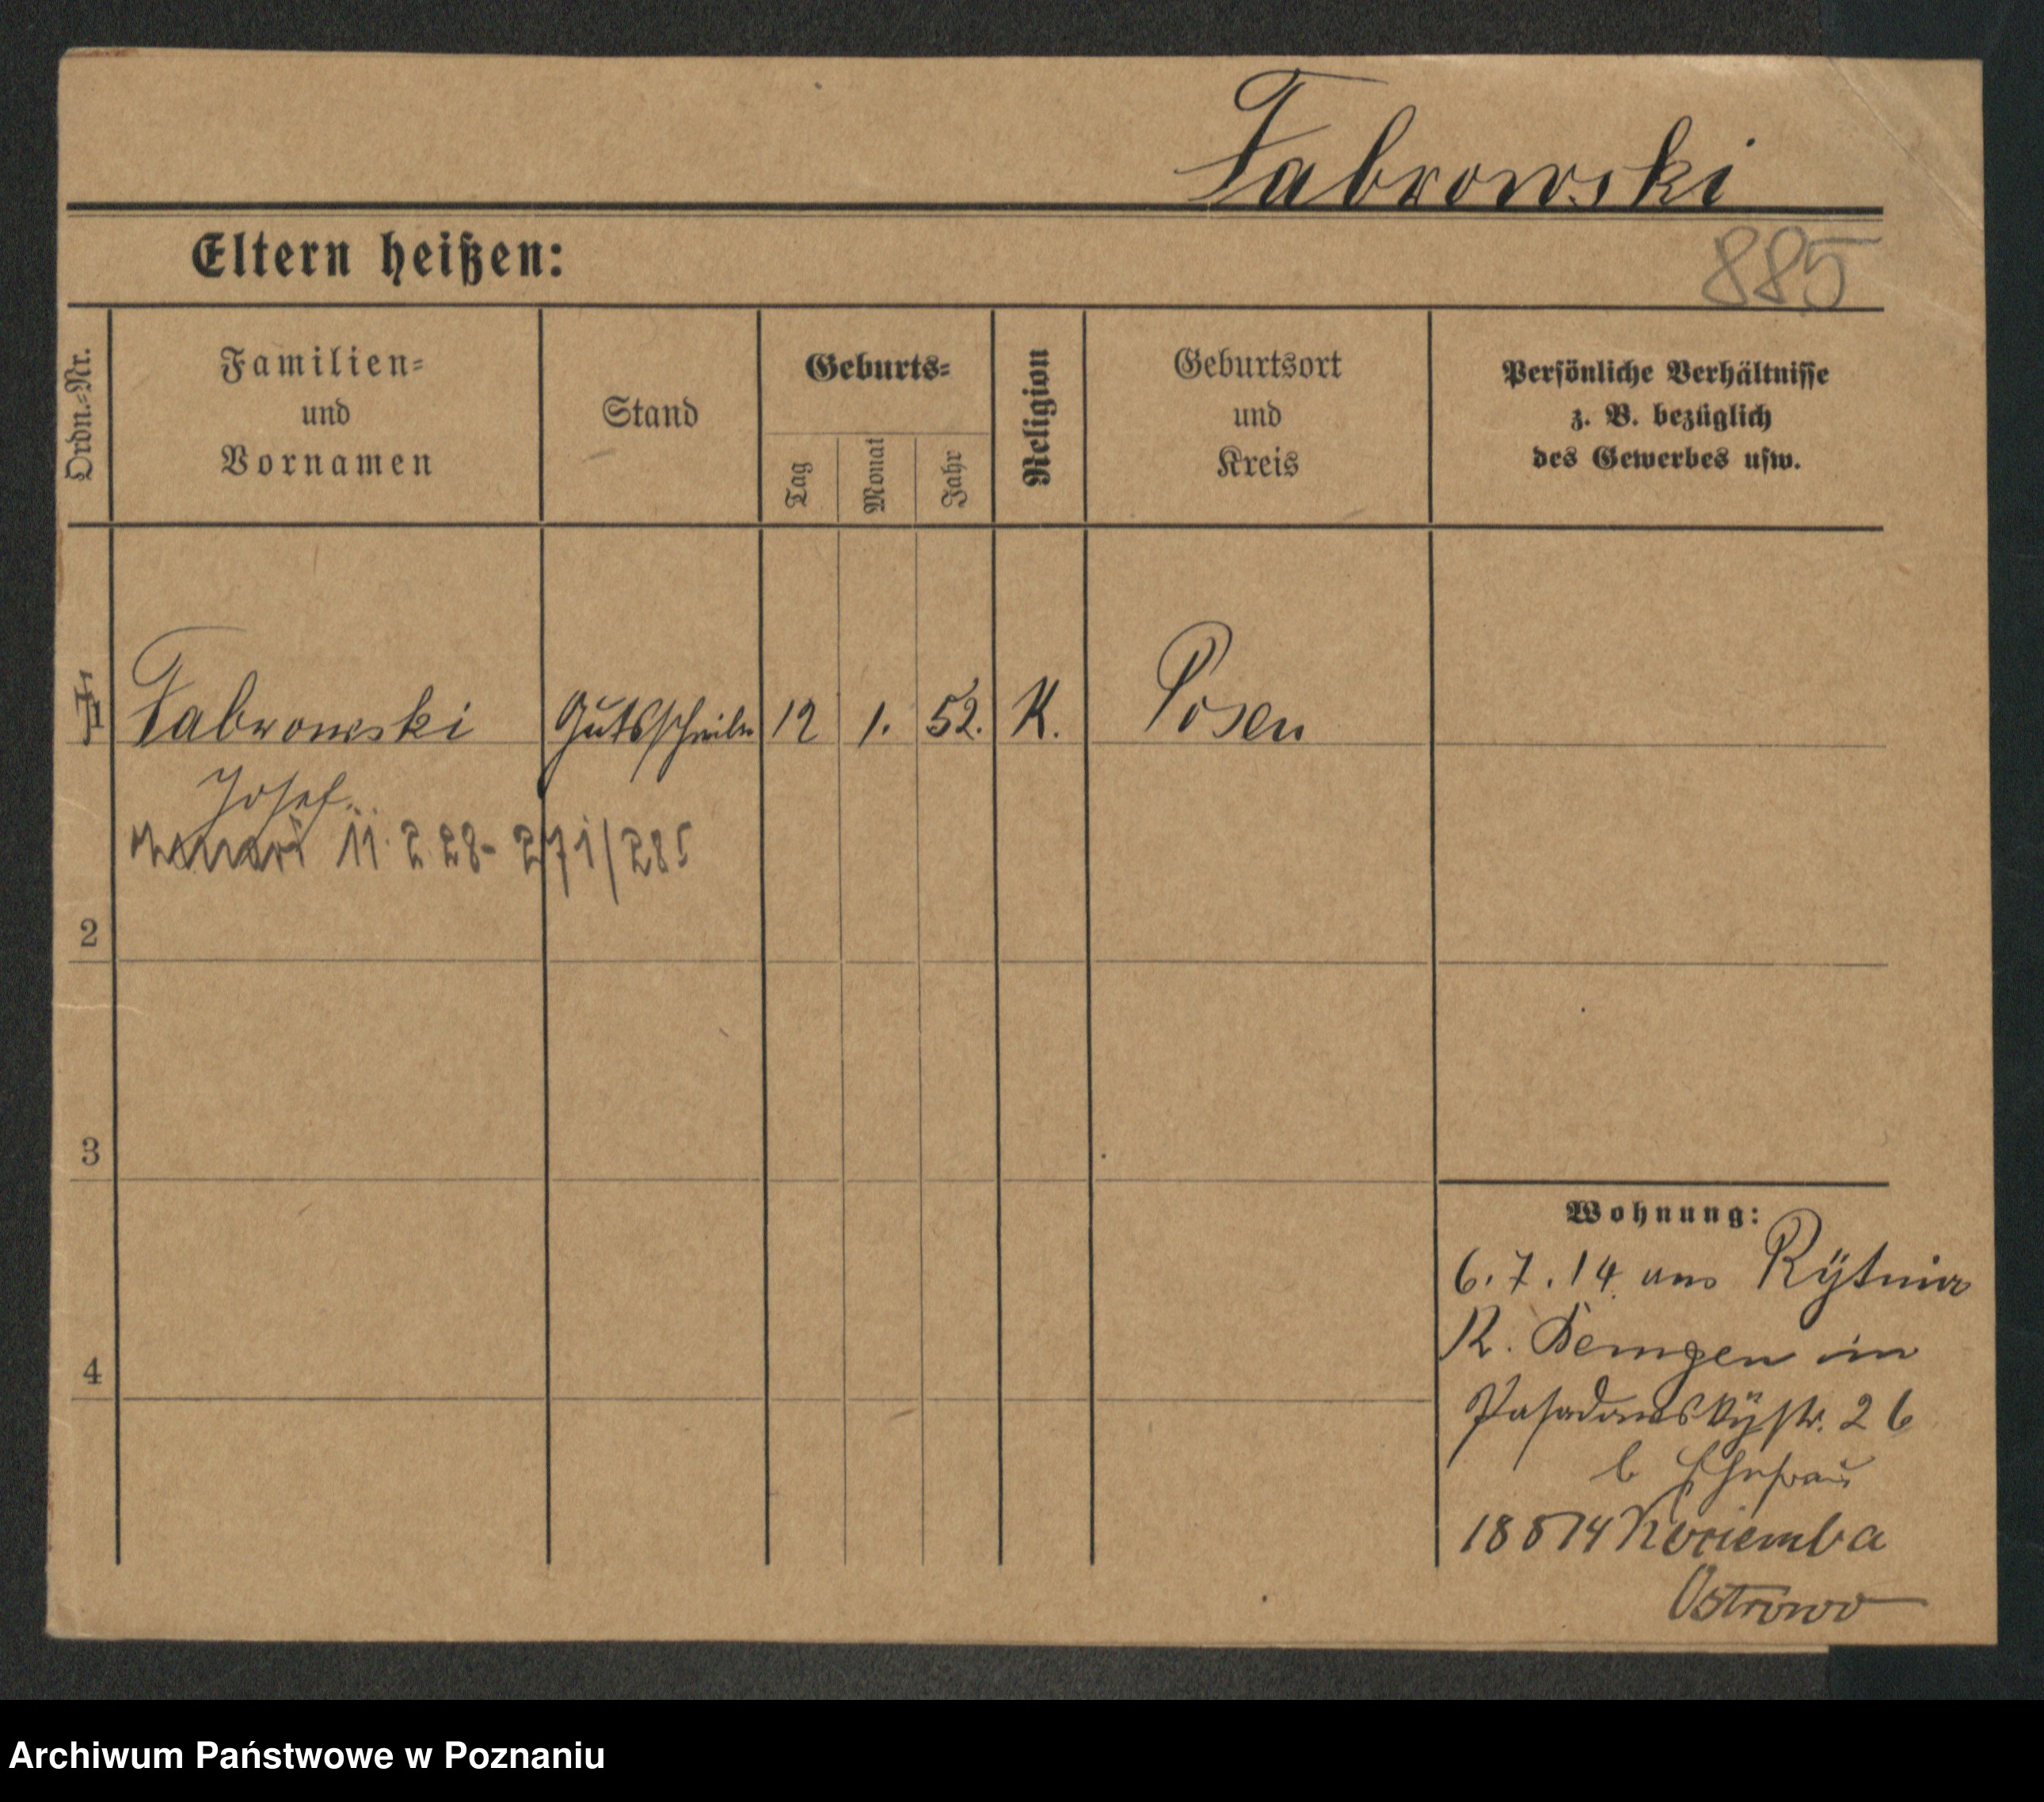 Fabrowski
Eltern heißen:
885
Ordn.-Nr.
Familien- und Vornamen
Stand
Geburts-
Tag
Monat
Jahr
Religion
Geburtsort und Kreis
Persönliche Verhältnisse z. B. bezüglich des Gewerbes usw.
1 Fabrowski Gutsschreiber 12 1. 52. K. Posen
Josef
11. 2 28- 271/285
2
3
4
Wohnung:
6. 7. 14 aus
K. in
Posadowskystr. 26
b Ehefrau
18 8 14
Ostrowo
Archiwum Państwowe w Poznaniu